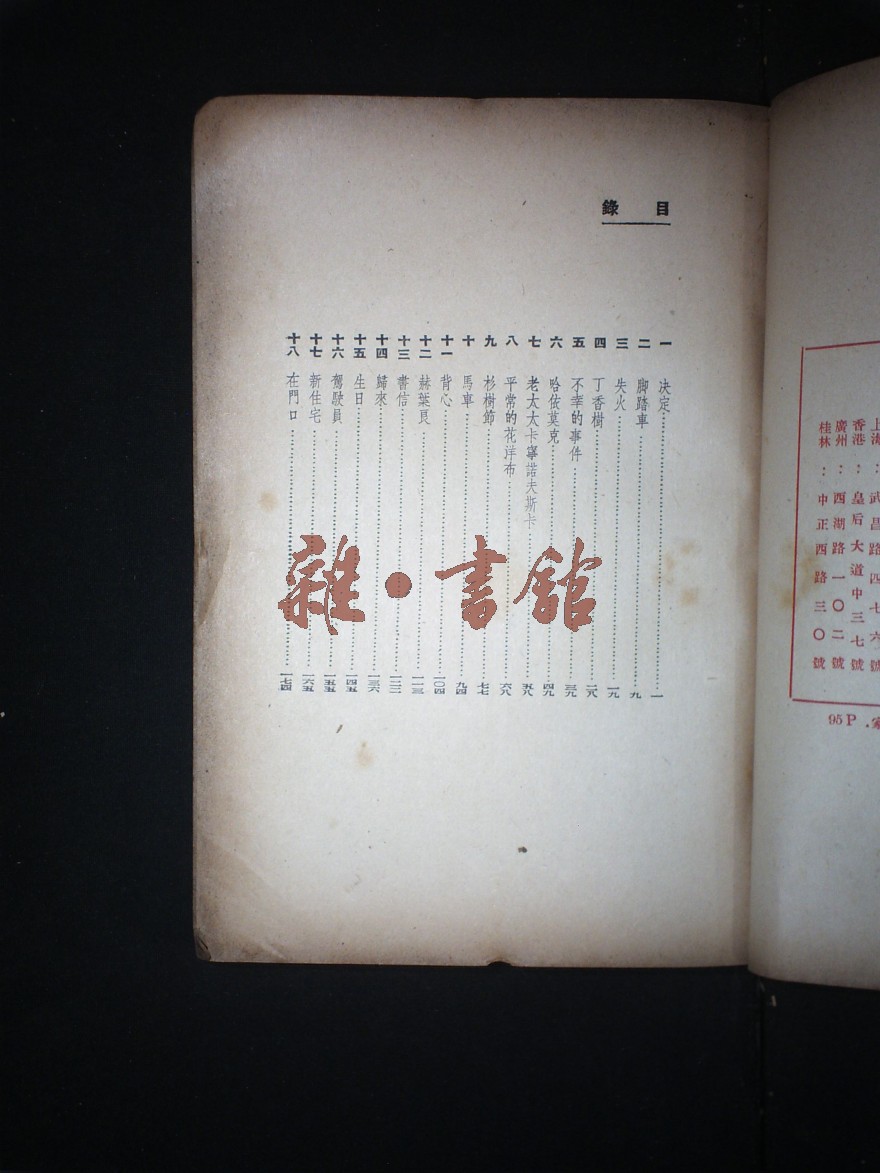 目錄
一 決定 一
二 脚踏車 九
三 失火 一九
四 丁香樹 二八
五 不幸的事件 三九
六 哈依莫克 四九
七 老太太卡寧諾夫斯卡 五八
八 平常的花洋布 六八
九 杉樹節 七七
十 馬車 九四
十一 背心 一〇四
十二 赫葉良 一一三
十三 書信 一二二
十四 歸來 一三六
十五 生日 一四五
十六 駕駛員 一五五
十七 新住宅 一六五
十八 在門口 一七四
雜·書舘
上海：武昌路四七六號
香港：皇后大道中三七號
廣州：西湖路一〇二號
桂林：中正西路三〇號
95P